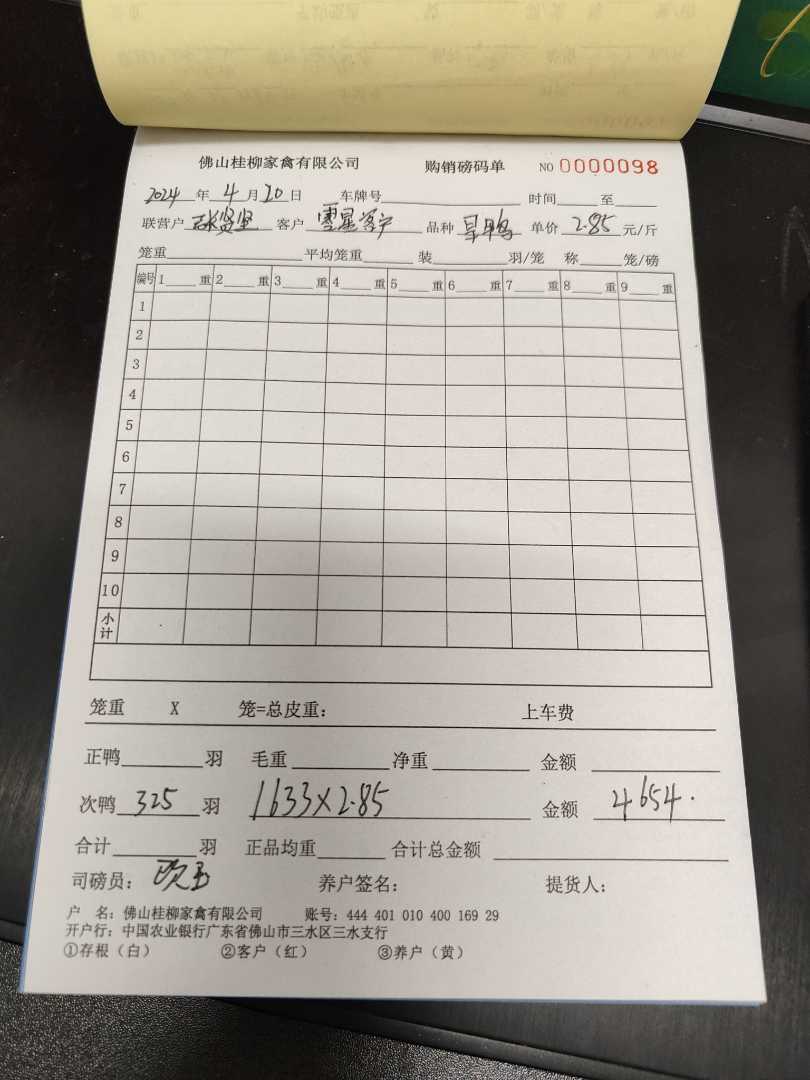 佛山桂柳家禽有限公司 购销磅码单 NO 0000098
2024年4月20日 车牌号 时间 至
联营户 贤坚 客户 零星客户 品种 旱鸭 单价 2.85 元/斤
笼重 平均笼重 装 羽/笼 称 笼/磅
编号 1 重 2 重 3 重 4 重 5 重 6 重 7 重 8 重 9 重
1
2
3
4
5
6
7
8
9
10
小计
笼重 X 笼=总皮重: 上车费
正鸭 羽 毛重 净重 金额
次鸭 325 羽 1633×2.85 金额 4654.
合计 羽 正品均重 合计总金额
司磅员: 养户签名: 提货人:
户 名: 佛山桂柳家禽有限公司 账号: 444 401 010 400 169 29
开户行: 中国农业银行广东省佛山市三水区三水支行
①存根（白） ②客户（红） ③养户（黄）